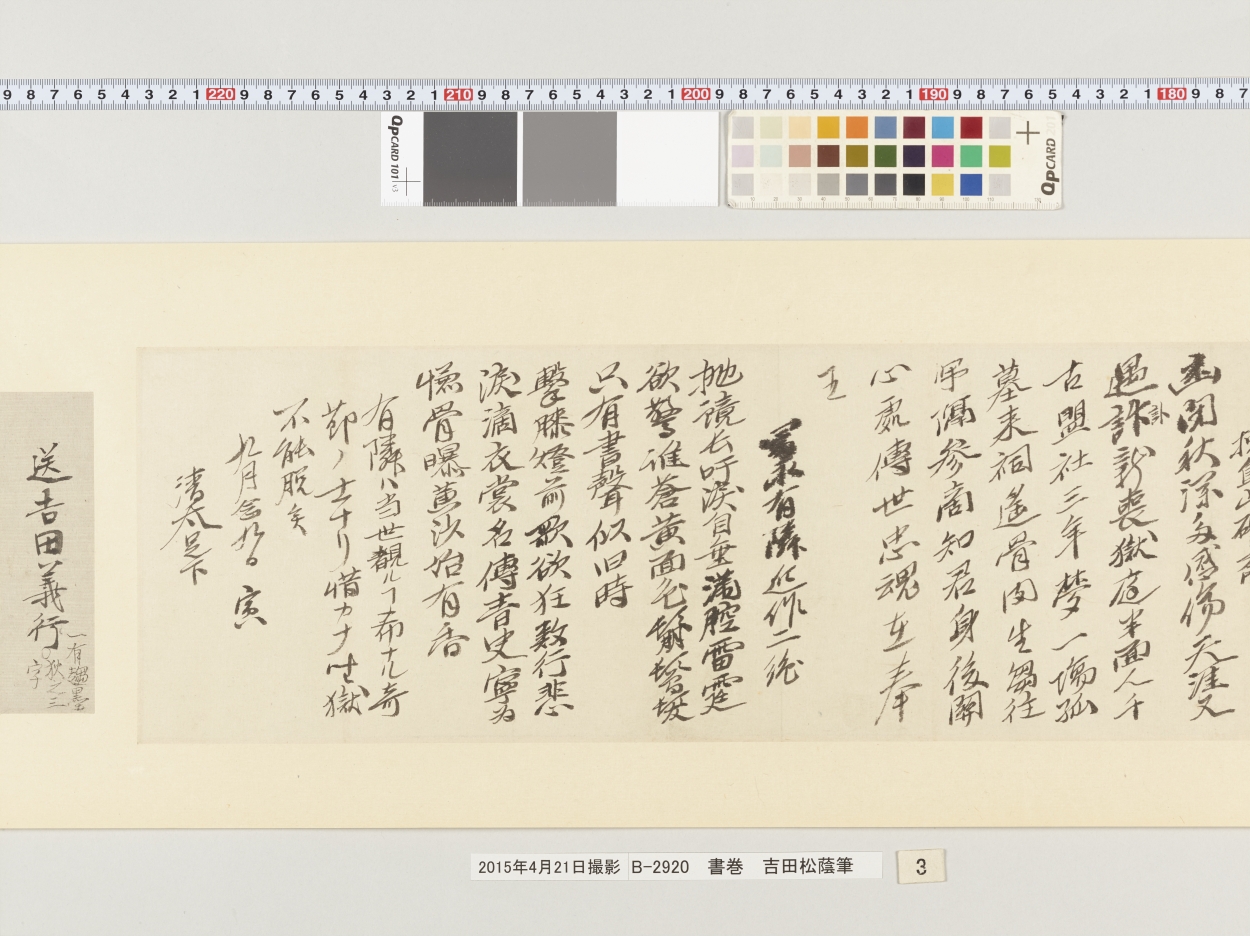 幽閉秋深多感傷天涯又
遇訃新喪獄庭半面人千
訃
古盟社三年夢一場孤
墓来祠遙骨肉生芻往
弔偶参商知君身後関
心処傳世忠魂在奉
王
有隣近作二絶
抛鏡長吁涙自垂満腔雷霆
欲驚誰蒼黄面色鬅鬙髪
只有書聲似旧時
撃膝燈前歌欲狂数行悲
涙滴衣裳名傳青史寧為
骨曝黄沙始有香
有隣ハ当世観ルヿ希ナル奇
節ノ士ナリ惜カナ此獄
不能脱矣
九月念九日 寅
清太足下
送吉田義行
一有
字
2015年4月21日撮影 B-2920 書巻 吉田松蔭筆
3
QPCARD 101 v3
QPCARD 201
9 8 7 6 5 4 3 2 1 220 9 8 7 6 5 4 3 2 1 210 9 8 7 6 5 4 3 2 1 200 9 8 7 6 5 4 3 2 1 190 9 8 7 6 5 4 3 2 1 180 9 8 7